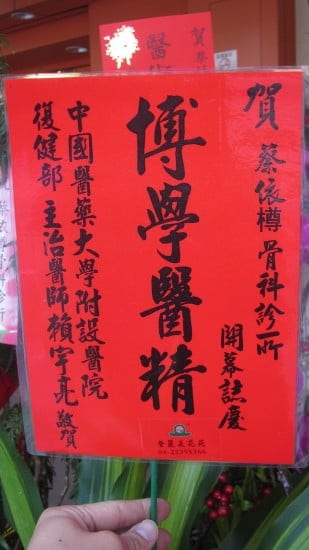 賀 蔡依樽骨科診所
開幕誌慶
博學醫精
中國醫藥大學附設醫院
復健部 主治醫師賴宇亮 敬賀
登麗美花苑
04-22395366
賀 蔡
醫